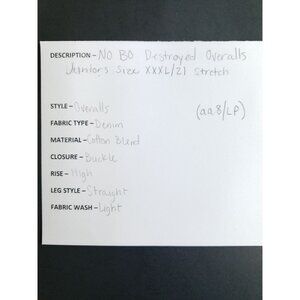 DESCRIPTION – NO BO Destroyed Overalls
Juniors Size XXXL/21 Stretch
STYLE – Overalls
(aa8/LP)
FABRIC TYPE – Denim
MATERIAL – Cotton Blend
CLOSURE – Buckle
RISE – High
LEG STYLE – Straight
FABRIC WASH – Light